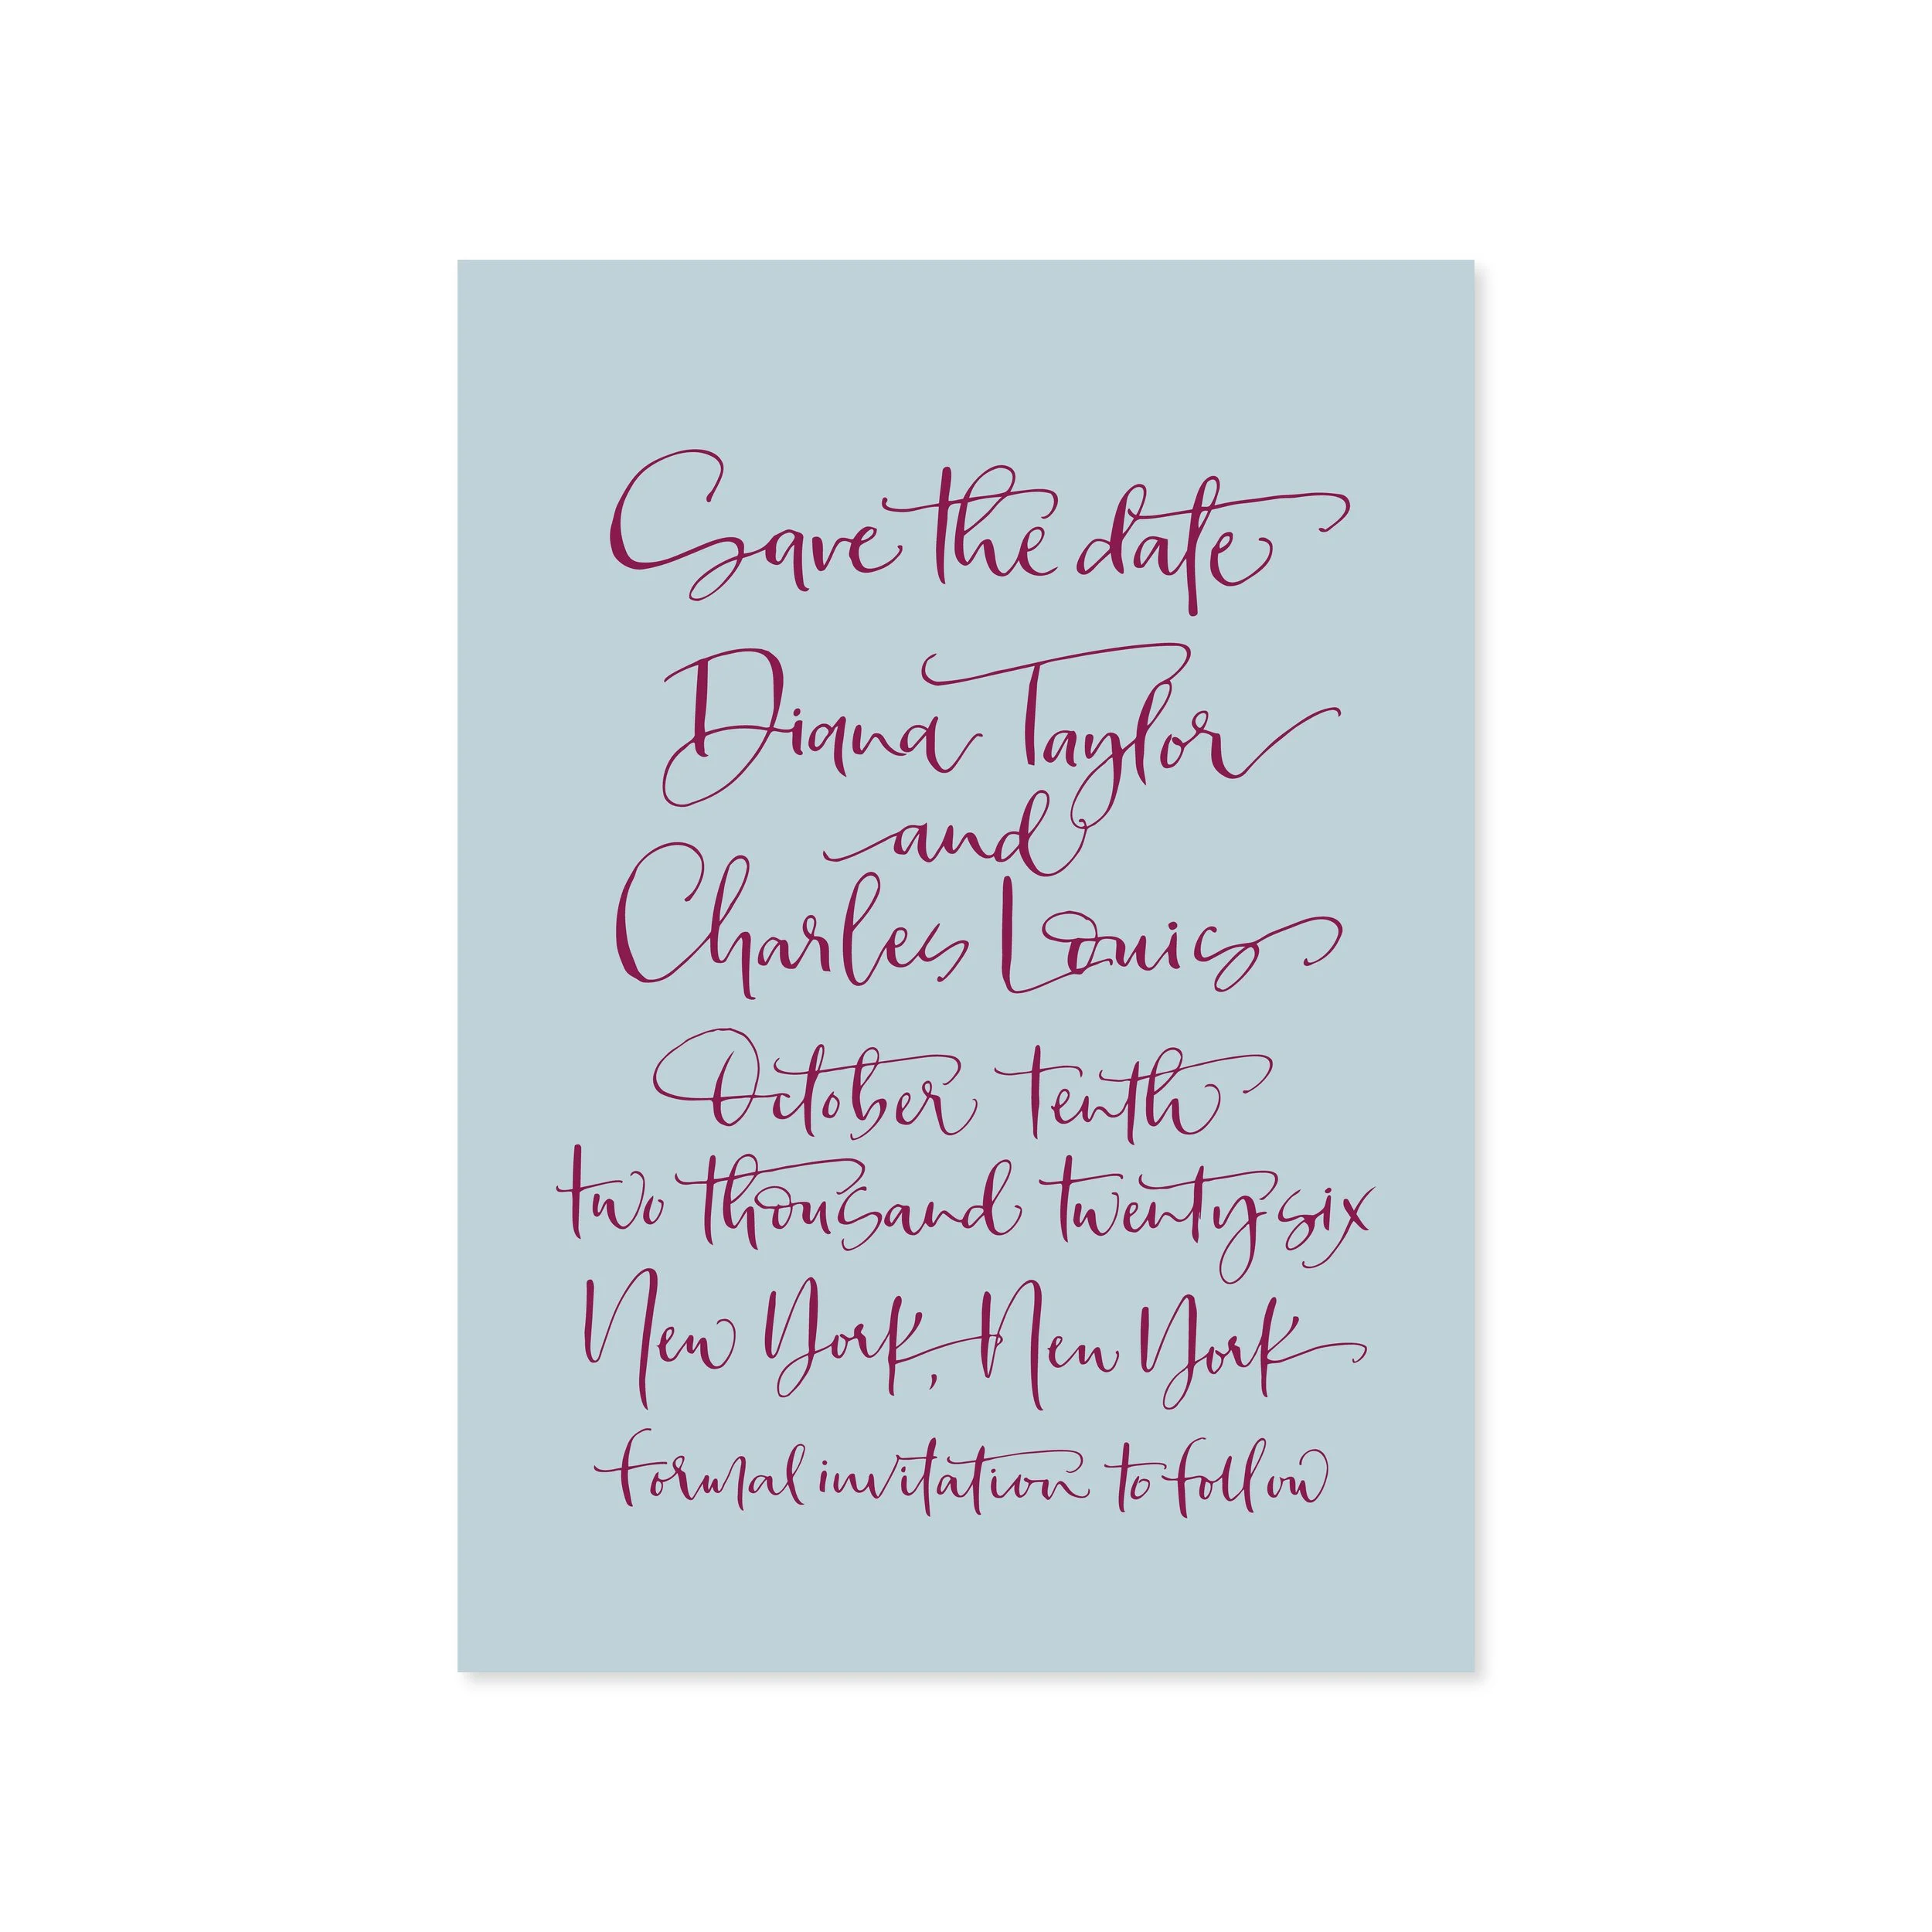 Save the date
Diana Taylor
and
Charles Louis
October Tenth
two thousand twenty six
New York, New York
formal invitation to follow